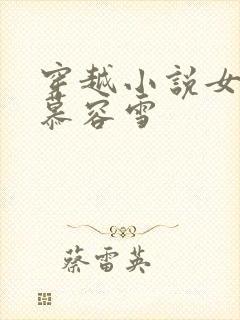 穿越小說女
慕容雪
蔡雷英